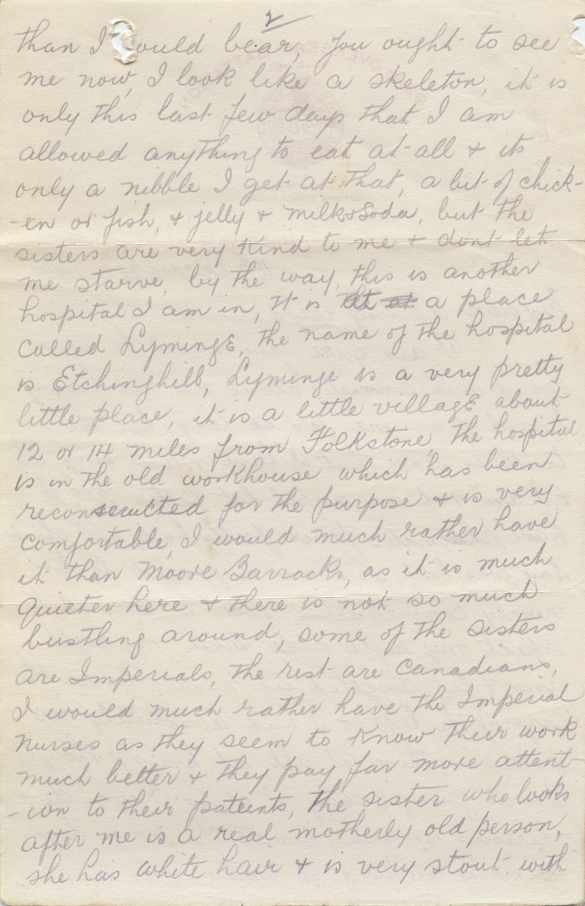 2
than I could bear, you ought to see
me now, I look like a skeleton, it is
only this last few days that I am
allowed anything to eat at all & its
only a nibble I get at that, a bit of chick-
-en or fish, & jelly & milk & Soda, but the
sisters are very kind to me & dont let
me starve, by the way, this is another
hospital I am in, It is at a place
called Lyminge, the name of the hospital
is Etchinghill, Lyminge is a very pretty
little place, it is a little village about
12 or 14 miles from Folkstone, the hospital
is in the old workhouse which has been
reconstructed for the purpose & is very
comfortable, I would much rather have
it than Moore Barracks, as it is much
quieter here & there is not so much
bustling around, some of the sisters
are Imperials, the rest are Canadians,
I would much rather have the Imperial
nurses as they seem to know their work
much better & they pay far more attent-
-ion to their pateints, the sister who looks
after me is a real motherly old person,
she has white hair & is very stout with